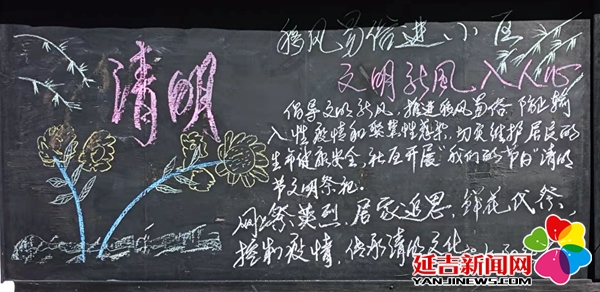 清明
移风易俗进小区
文明新风入人心
倡导文明新风、推进移风易俗、防止输
入性疫情和聚集性感染、切实维护居民的
生命健康安全、社区开展"我们的节日"清明
节文明祭祀。
网上祭英烈、居家追思、鲜花代祭、
控制疫情、传承清明文化。
延吉新闻网
WWW.YANJINEWS.COM